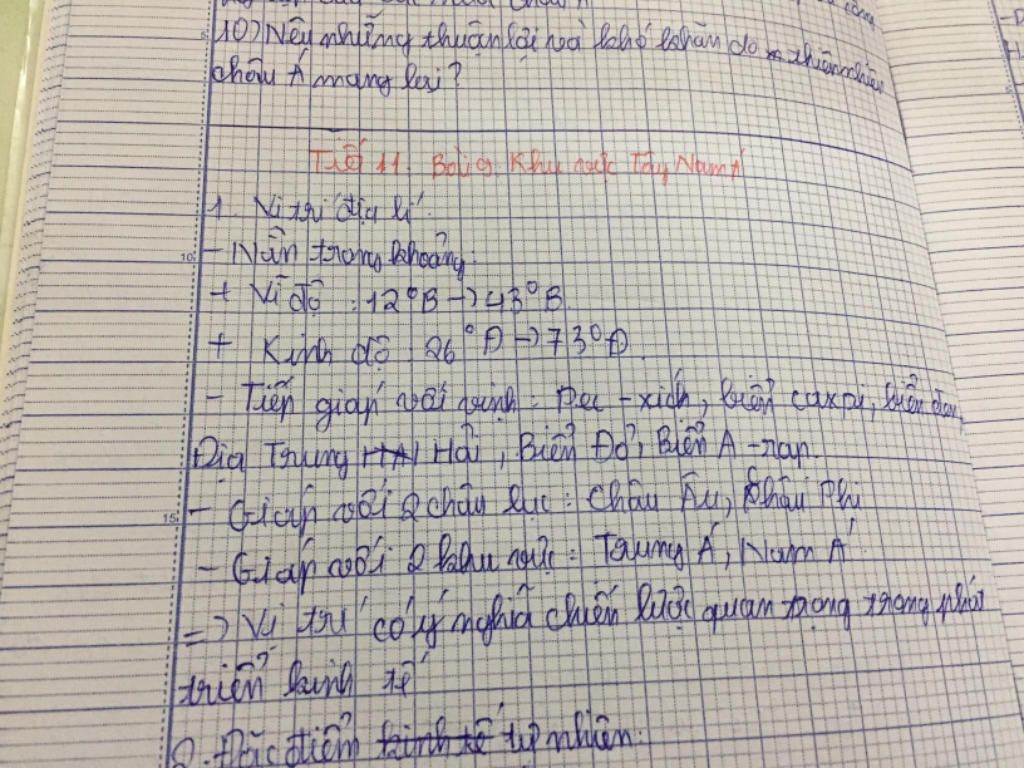 10) Nêu những thuận lợi và khó khăn do thiên nhiên
châu Á mang lại?
Tiết 11. Bài 9 Khu vực Tây Nam Á
1. Vị trí địa lí.
- Nằn trong khoảng:
+ Vĩ độ : 12°B → 43°B
+ Kinh độ : 26°Đ → 73°Đ
- Tiếp giáp với vịnh : Pec - xích, biển caxpi, biển đen,
Địa Trung Hải, Biển Đỏ, Biển A - rap.
- Giáp với 2 châu lục : Châu Âu, Châu Phi
- Giáp với 2 khu vực : Trung Á, Nam Á
=> Vị trí có ý nghĩa chiến lược quan trọng trong phát
triển kinh tế
2. Đặc điểm kinh tế tự nhiên.